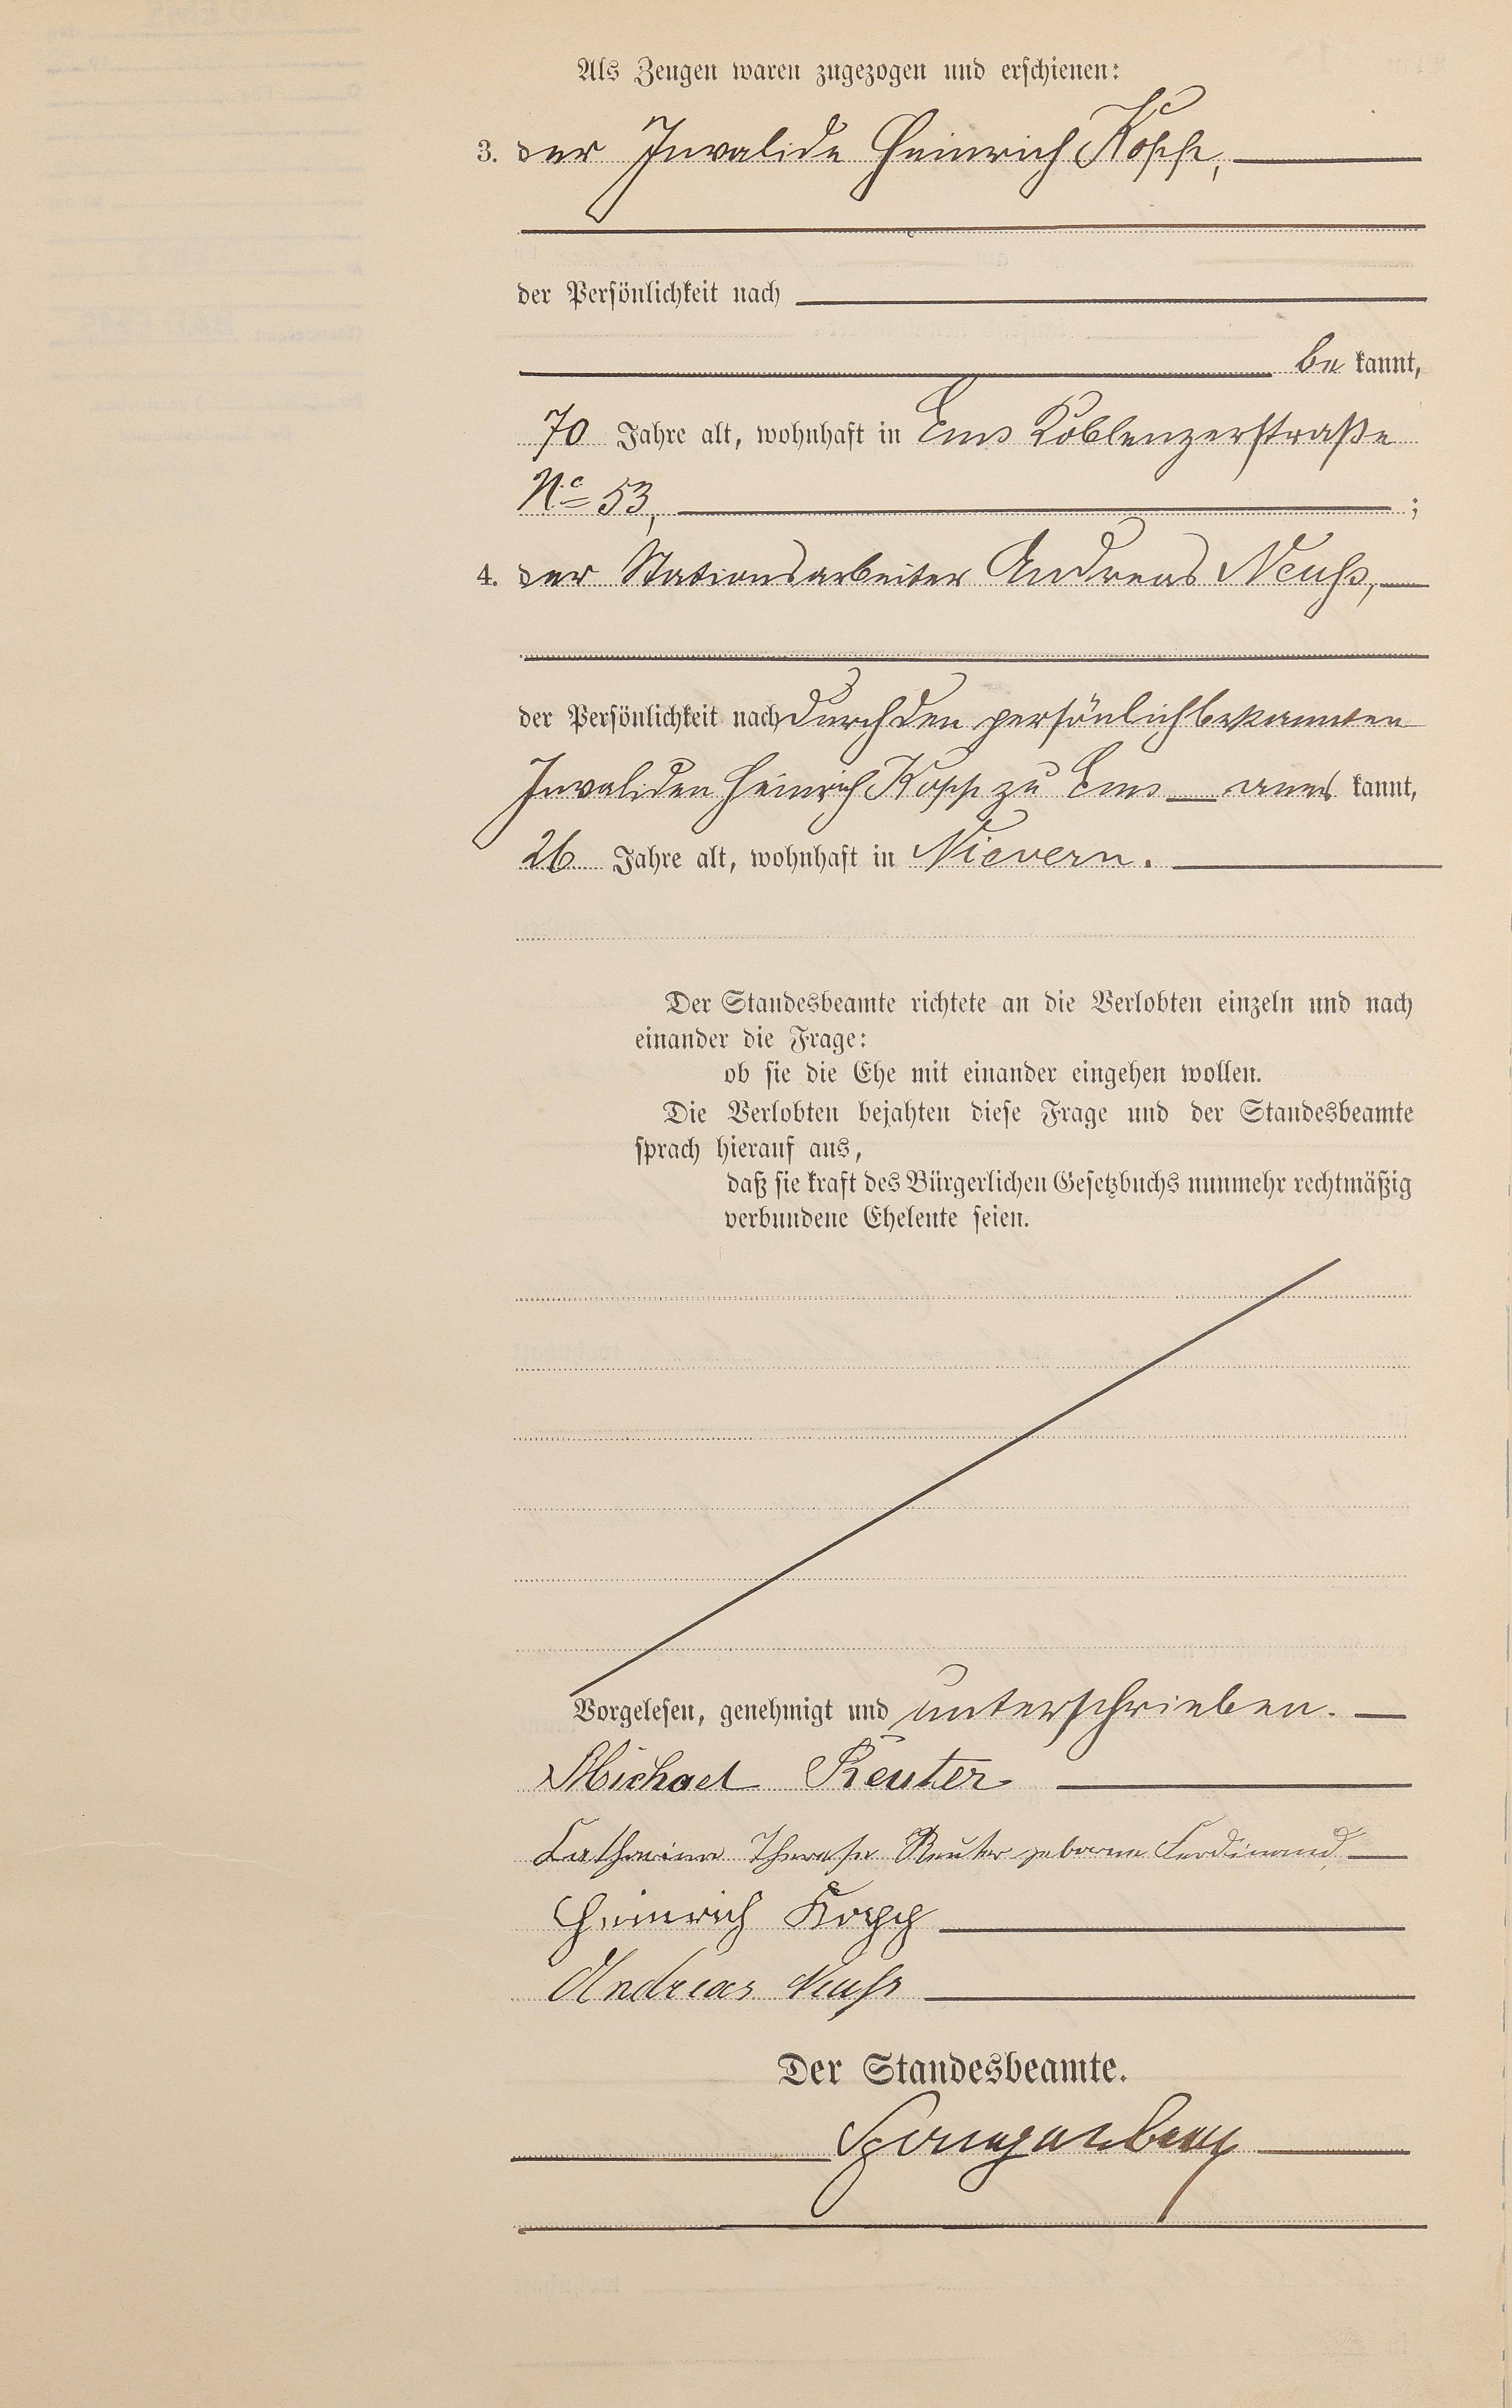 Als Zeugen waren zugezogen und erschienen:
3. der Invalide Heinrich Kopp,
der Persönlichkeit nach
be kannt,
70 Jahre alt, wohnhaft in Ems Koblenzerstraße
No 53, ;
4. der Stationsarbeiter Andreas Neuß,
der Persönlichkeit nach durch den persönlich bekannten
Invaliden Heinrich Kopp zu Ems aner kannt,
26 Jahre alt, wohnhaft in Nievern.
Der Standesbeamte richtete an die Verlobten einzeln und nach
einander die Frage:
ob sie die Ehe mit einander eingehen wollen.
Die Verlobten bejahten diese Frage und der Standesbeamte
sprach hierauf aus,
daß sie kraft des Bürgerlichen Gesetzbuchs nunmehr rechtmäßig
verbundene Eheleute seien.
Vorgelesen, genehmigt und unterschrieben.
Michael Reuter
Catharina Therese Reuter geborne Ferdinand
Heinrich Kopp
Andreas Neuß
Der Standesbeamte.